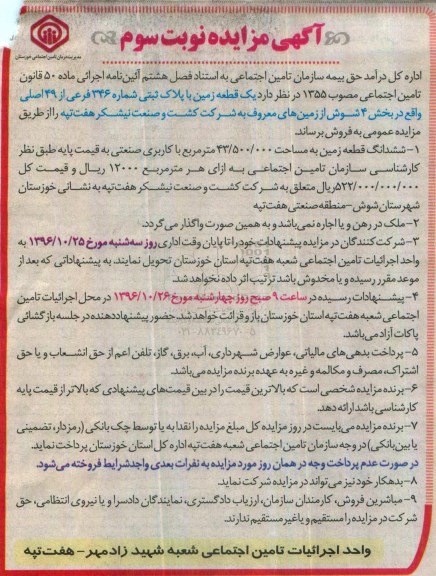 آگهی مزایده نوبت سوم
مدیریت درمان تامین اجتماعی خوزستان
اداره کل درآمد حق بیمه سازمان تامین اجتماعی به استناد فصل هشتم آئین‌نامه اجرائی ماده ۵۰ قانون
تامین اجتماعی مصوب ۱۳۵۵ در نظر دارد یک قطعه زمین با پلاک ثبتی شماره ۳۴۶ فرعی از ۴۹ اصلی
واقع در بخش ۴ شوش از زمین‌های معروف به شرکت کشت و صنعت نیشکر هفت‌تپه را از طریق
مزایده عمومی به فروش برساند.
۱- ششدانگ قطعه زمین به مساحت ۴۳/۵۰۰/۰۰۰ مترمربع با کاربری صنعتی به قیمت پایه طبق نظر
کارشناسی سازمان تامین اجتماعی به ازای هر مترمربع ۱۲۰۰۰ ریال و قیمت کل
۵۲۲/۰۰۰/۰۰۰/۰۰۰ ریال متعلق به شرکت کشت و صنعت نیشکر هفت‌تپه به نشانی خوزستان
شهرستان شوش-منطقه صنعتی هفت‌تپه
۲- ملک در رهن و یا اجاره نمی‌باشد و به همین صورت واگذار می‌گردد.
۳- شرکت‌کنندگان در مزایده پیشنهادات خود را تا پایان وقت اداری روز سه‌شنبه مورخ ۱۳۹۶/۱۰/۲۵ به
واحد اجرائیات تامین اجتماعی شعبه هفت‌تپه استان خوزستان تحویل نمایند. به پیشنهاداتی که بعد از
موعد مقرر رسیده و یا مخدوش باشد ترتیب اثر داده نخواهد شد.
۴- پیشنهادات رسیده در ساعت ۹ صبح روز چهارشنبه مورخ ۱۳۹۶/۱۰/۲۶ در محل اجرائیات تامین
اجتماعی شعبه هفت‌تپه استان خوزستان باز و قرائت خواهد شد. حضور پیشنهاددهنده در جلسه بازگشائی
پاکات آزاد می‌باشد.
۵- پرداخت بدهی‌های مالیاتی، عوارض شهرداری، آب، برق، گاز، تلفن اعم از حق انشعاب و یا حق
اشتراک، مصرف و مکالمه و غیره به عهده برنده مزایده می‌باشد.
۶- برنده مزایده شخصی است که بالاترین قیمت را در بین قیمت‌های پیشنهادی که بالاتر از قیمت پایه
کارشناسی باشد ارائه دهد.
۷- برنده مزایده می‌بایست در روز مزایده کل مبلغ مزایده را نقدا به یا توسط چک بانکی (رمزدار، تضمینی
یا بین‌بانکی) در وجه سازمان تامین اجتماعی شعبه هفت‌تپه اداره کل استان خوزستان پرداخت نماید.
در صورت عدم پرداخت وجه در همان روز مورد مزایده به نفرات بعدی واجد شرایط فروخته می‌شود.
۸- بدهکار خود نیز می‌تواند در مزایده شرکت نماید.
۹- مباشرین فروش، کارمندان سازمان، ارزیاب دادگستری، نمایندگان دادسرا و یا نیروی انتظامی، حق
شرکت در مزایده را مستقیم و یا غیر مستقیم ندارند.
واحد اجرائیات تامین اجتماعی شعبه شهید زادمهر - هفت‌تپه